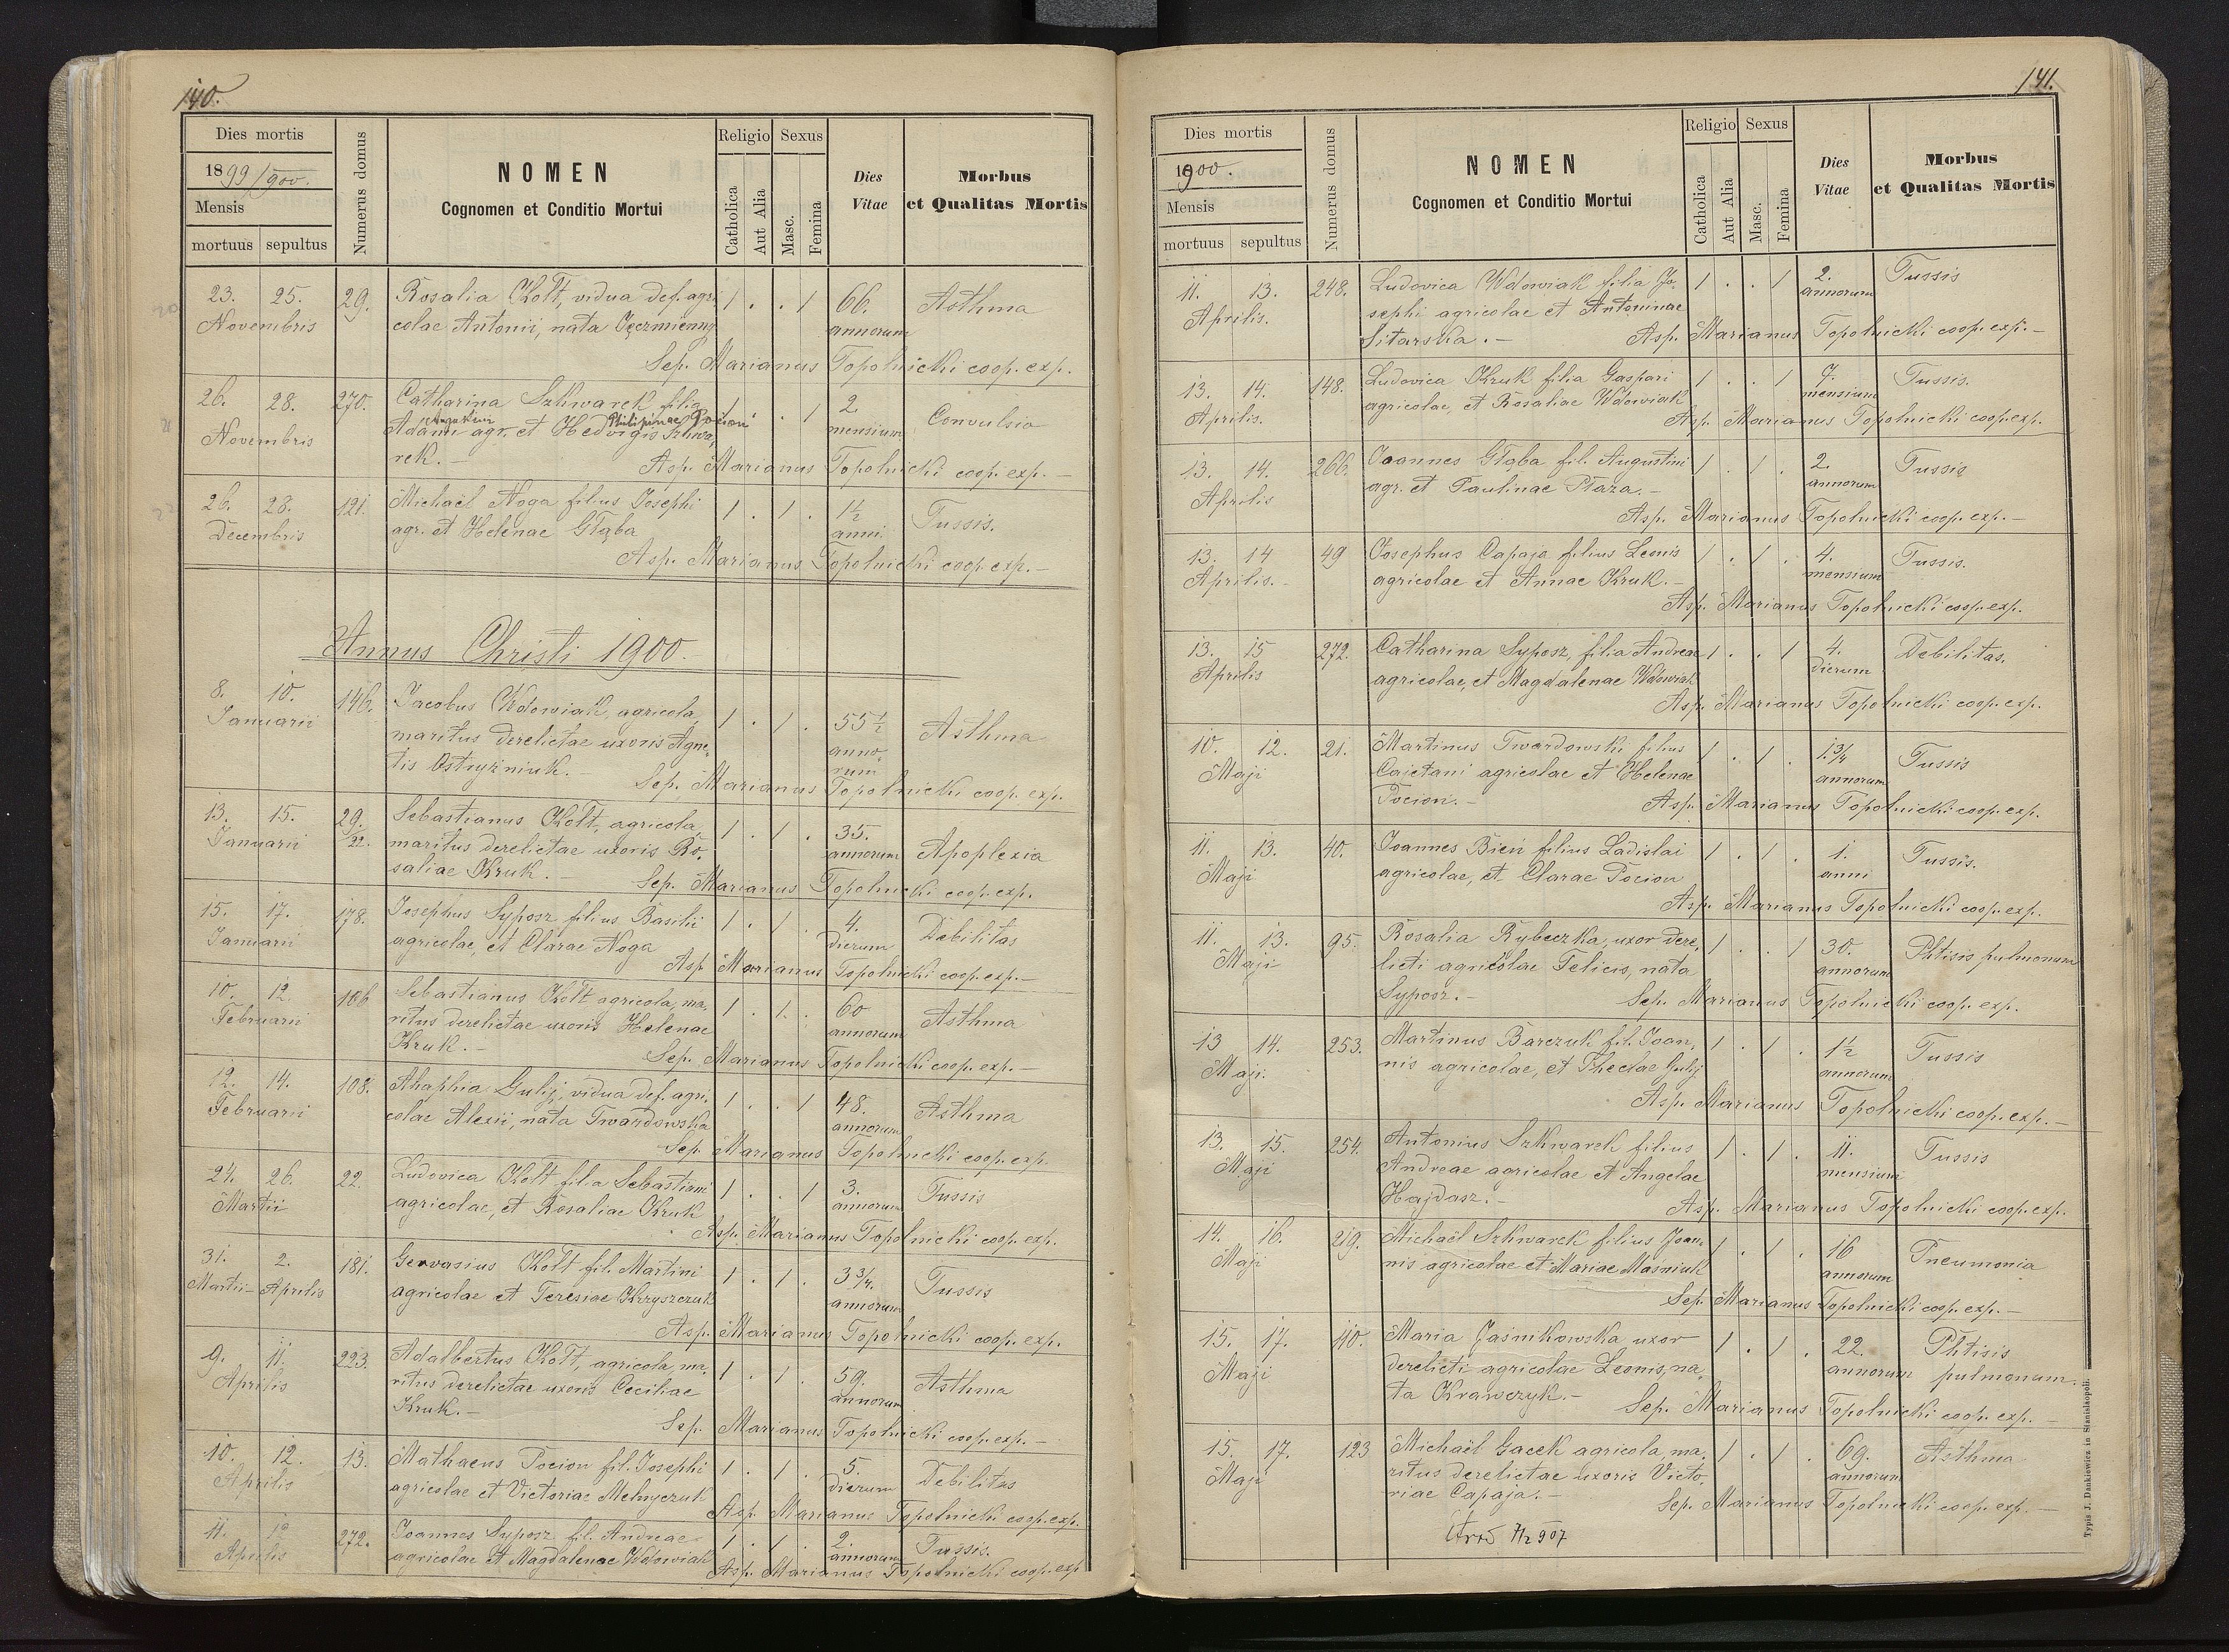 140.
Dies mortis
1899/900.
Mensis
mortuus sepultus
Numerus domus
NOMEN
Cognomen et Conditio Mortui
Religio
Catholica
Aut Alia
Sexus
Masc.
Femina
Dies
Vitae
Morbus
et Qualitas Mortis
23. 25. 29. Rosalia Kołt, vidua def. agri- 1 . . 1 66. Asthma
Novembris colae Antonii, nata Jęczmienny annorum
Sep. Marianus Topolnicki coop. exp.
26. 28. 270. Catharina Szkwarek filia 1 . . 1 2. Convulsio
Augustini Philipinae Pocion
Novembris Adami agr. et Hedvigis Szkwa- mensium
rek. Asp. Marianus Topolnicki coop. exp. —
26. 28. 121. Michaël Noga filius Josephi 1 . 1 . 1½ Tussis.
Decembris agr. et Helenae Głąba anni
Asp. Marianus Topolnicki coop. exp. —
Annus Christi 1900.
8. 10. 146. Jacobus Wdowiak, agricola, 1 . 1 . 55½ Asthma
Januarii maritus derelictae uxoris Agne- anno-
tis Ostryżniuk. — rum
Sep. Marianus Topolnicki coop. exp.
13. 15. 29./22. Sebastianus Kołt, agricola, 1 . 1 . 35. Apoplexia
Januarii maritus derelictae uxoris Ro- annorum
saliae Kruk. — Sep. Marianus Topolnicki coop. exp.
15. 17. 178. Josephus Syposz filius Basilii 1 . 1 . 4. Debilitas
Januarii agricolae, et Clarae Noga dierum
Asp. Marianus Topolnicki coop. exp. —
10. 12. 106 Sebastianus Kołt agricola, ma- 1 . 1 . 60 Asthma
Februarii ritus derelictae uxoris Helenae annorum
Kruk. — Sep. Marianus Topolnicki coop. exp. —
12. 14. 108. Ahaphia Gulij, vidua def. agri- 1 . . 1 48. Asthma
Februarii colae Alexii, nata Twardowska annorum
Sep. Marianus Topolnicki coop. exp.
24. 26. 22. Ludovica Kołt filia Sebastiani 1 . . 1 3. Tussis
Martii agricolae, et Rosaliae Kruk annorum
Asp. Marianus Topolnicki coop. exp.
31. 2. 181. Gervasius Kołt fil. Martini 1 . 1 . 3¾. Tussis
Martii — Aprilis agricolae et Teresiae Krzyszczuk annorum
Asp. Marianus Topolnicki coop. exp.
9. 11. 223. Adalbertus Kołt, agricola, ma- 1 . 1 . 59. Asthma
Aprilis ritus derelictae uxoris Ceciliae annorum
Kruk. — Sep. Marianus Topolnicki coop. exp. —
10. 12. 13. Mathaeus Pocion fil. Josephi 1 . 1 . 5. Debilitas
Aprilis agricolae et Victoriae Melnyczuk dierum
Asp. Marianus Topolnicki coop. exp.
11. 12 272. Joannes Syposz fil. Andreae 1 . 1 . 2. Tussis.
Aprilis agricolae et Magdalenae Wdowiak annorum
Asp. Marianus Topolnicki coop. exp
141.
Dies mortis
1900.
Mensis
mortuus sepultus
Numerus domus
NOMEN
Cognomen et Conditio Mortui
Religio
Catholica
Aut Alia
Sexus
Masc.
Femina
Dies
Vitae
Morbus
et Qualitas Mortis
11. 13. 248. Ludovica Wdowiak filia Jo- 1 . . 1 2. Tussis
Aprilis. sephi agricolae et Antoninae annorum
Sitarska. — Asp. Marianus Topolnicki coop. exp. —
13. 14. 148. Ludovica Kruk filia Gaspari 1 . . 1 7. Tussis.
Aprilis. agricolae, et Rosaliae Wdowiak mensium
Asp. Marianus Topolnicki coop. exp.
13. 14. 266. Joannes Głąba fil. Augustini 1 . 1 . 2. Tussis
Aprilis agr. et Paulinae Płaza. — annorum
Asp. Marianus Topolnicki coop. exp. —
13. 14 49 Josephus Capaja filius Leonis 1 . 1 . 4. Tussis.
Aprilis. agricolae et Annae Kruk. — mensium
Asp. Marianus Topolnicki coop. exp.
13. 15 272. Catharina Syposz, filia Andreae 1 . . 1 4. Debilitas.
Aprilis agricolae, et Magdalenae Wdowiak dierum
Asp. Marianus Topolnicki coop. exp.
10. 12. 21. Martinus Twardowski filius 1 . 1 . 1¾ Tussis
Maji Cajetani agricolae et Helenae annorum
Pocion. — Asp. Marianus Topolnicki coop. exp.
11. 13. 40. Joannes Bień filius Ladislai 1 . 1 . 1. Tussis.
Maji agricolae, et Clarae Pocion anni
Asp. Marianus Topolnicki coop. exp.
11. 13. 95. Rosalia Rybeczka, uxor dere- 1 . . 1 30. Phtisis pulmonum
Maji licti agricolae Felicis, nata annorum
Syposz. — Sep. Marianus Topolnicki coop. exp.
13 14. 253. Martinus Barczuk fil. Joan- 1 . 1 . 1½ Tussis
Maji. nis agricolae, et Theclae Gulij annorum
Asp. Marianus Topolnicki coop. exp. —
13. 15. 254. Antonius Szkwarek filius 1 . 1 . 11. Tussis
Maji Andreae agricolae et Angelae mensium
Hajdasz. — Asp. Marianus Topolnicki coop. exp.
14. 16. 219. Michaël Szkwarek filius Joan- 1 . 1 . 16 Pneumonia
Maji nis agricolae et Mariae Maśniuk annorum
Sep. Marianus Topolnicki coop. exp. —
15. 17. 110. Maria Jaśnikowska uxor 1 . 1 . 22. Phtisis
Maji derelicti agricolae Leonis, na- annorum pulmonum.
ta Krawczyk. — Sep. Marianus Topolnicki coop. exp. —
15. 17. 123 Michaël Gacek agricola, ma- 1 . 1 . 69. Asthma
Maji ritus derelictae uxoris Victo- annorum
riae Capaja. — Sep. Marianus Topolnicki coop. exp. —
7/2 907
Typis J. Dankiewicz in Stanislaopoli.